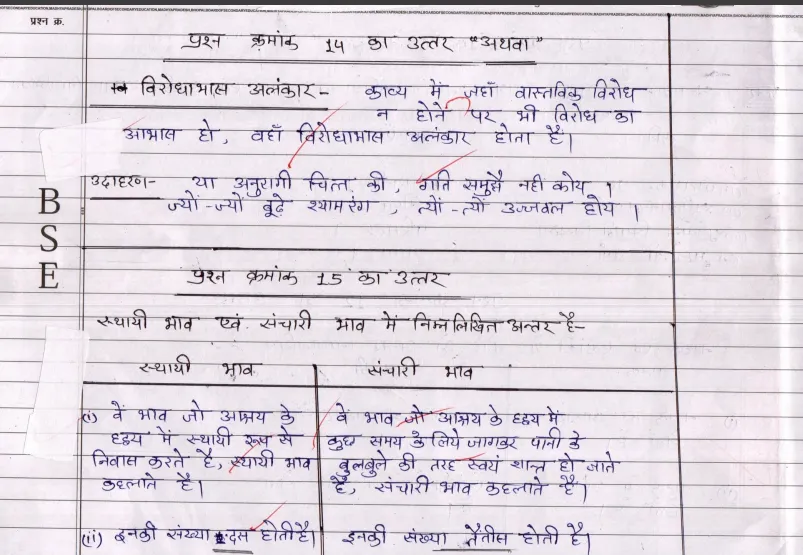 प्रश्न क्र.
प्रश्न क्रमांक 14 का उत्तर "अथवा"
विरोधाभास अलंकार- काव्य में जहाँ वास्तविक विरोध
न होने पर भी विरोध का
आभास हो, वहाँ विरोधाभास अलंकार होता है।
उदाहरण- या अनुरागी चित्त की, गति समुझै नहीं कोय ।
ज्यों-ज्यों बूढ़े श्यामरंग, त्यों-त्यों उज्जवल होय ।
B
S
E
प्रश्न क्रमांक 15 का उत्तर
स्थायी भाव एवं संचारी भाव में निम्नलिखित अन्तर है-
स्थायी भाव संचारी भाव
(i) वें भाव जो आश्रय के वें भाव जो आश्रय के हृदय में
हृदय में स्थायी रूप से कुछ समय के लिये जागकर पानी के
निवास करते है, स्थायी भाव बुलबुले की तरह स्वयं शान्त हो जाते
कहलाते है। है, संचारी भाव कहलाते है।
(ii) इनकी संख्या दस होती है। इनकी संख्या तैंतीस होती है।